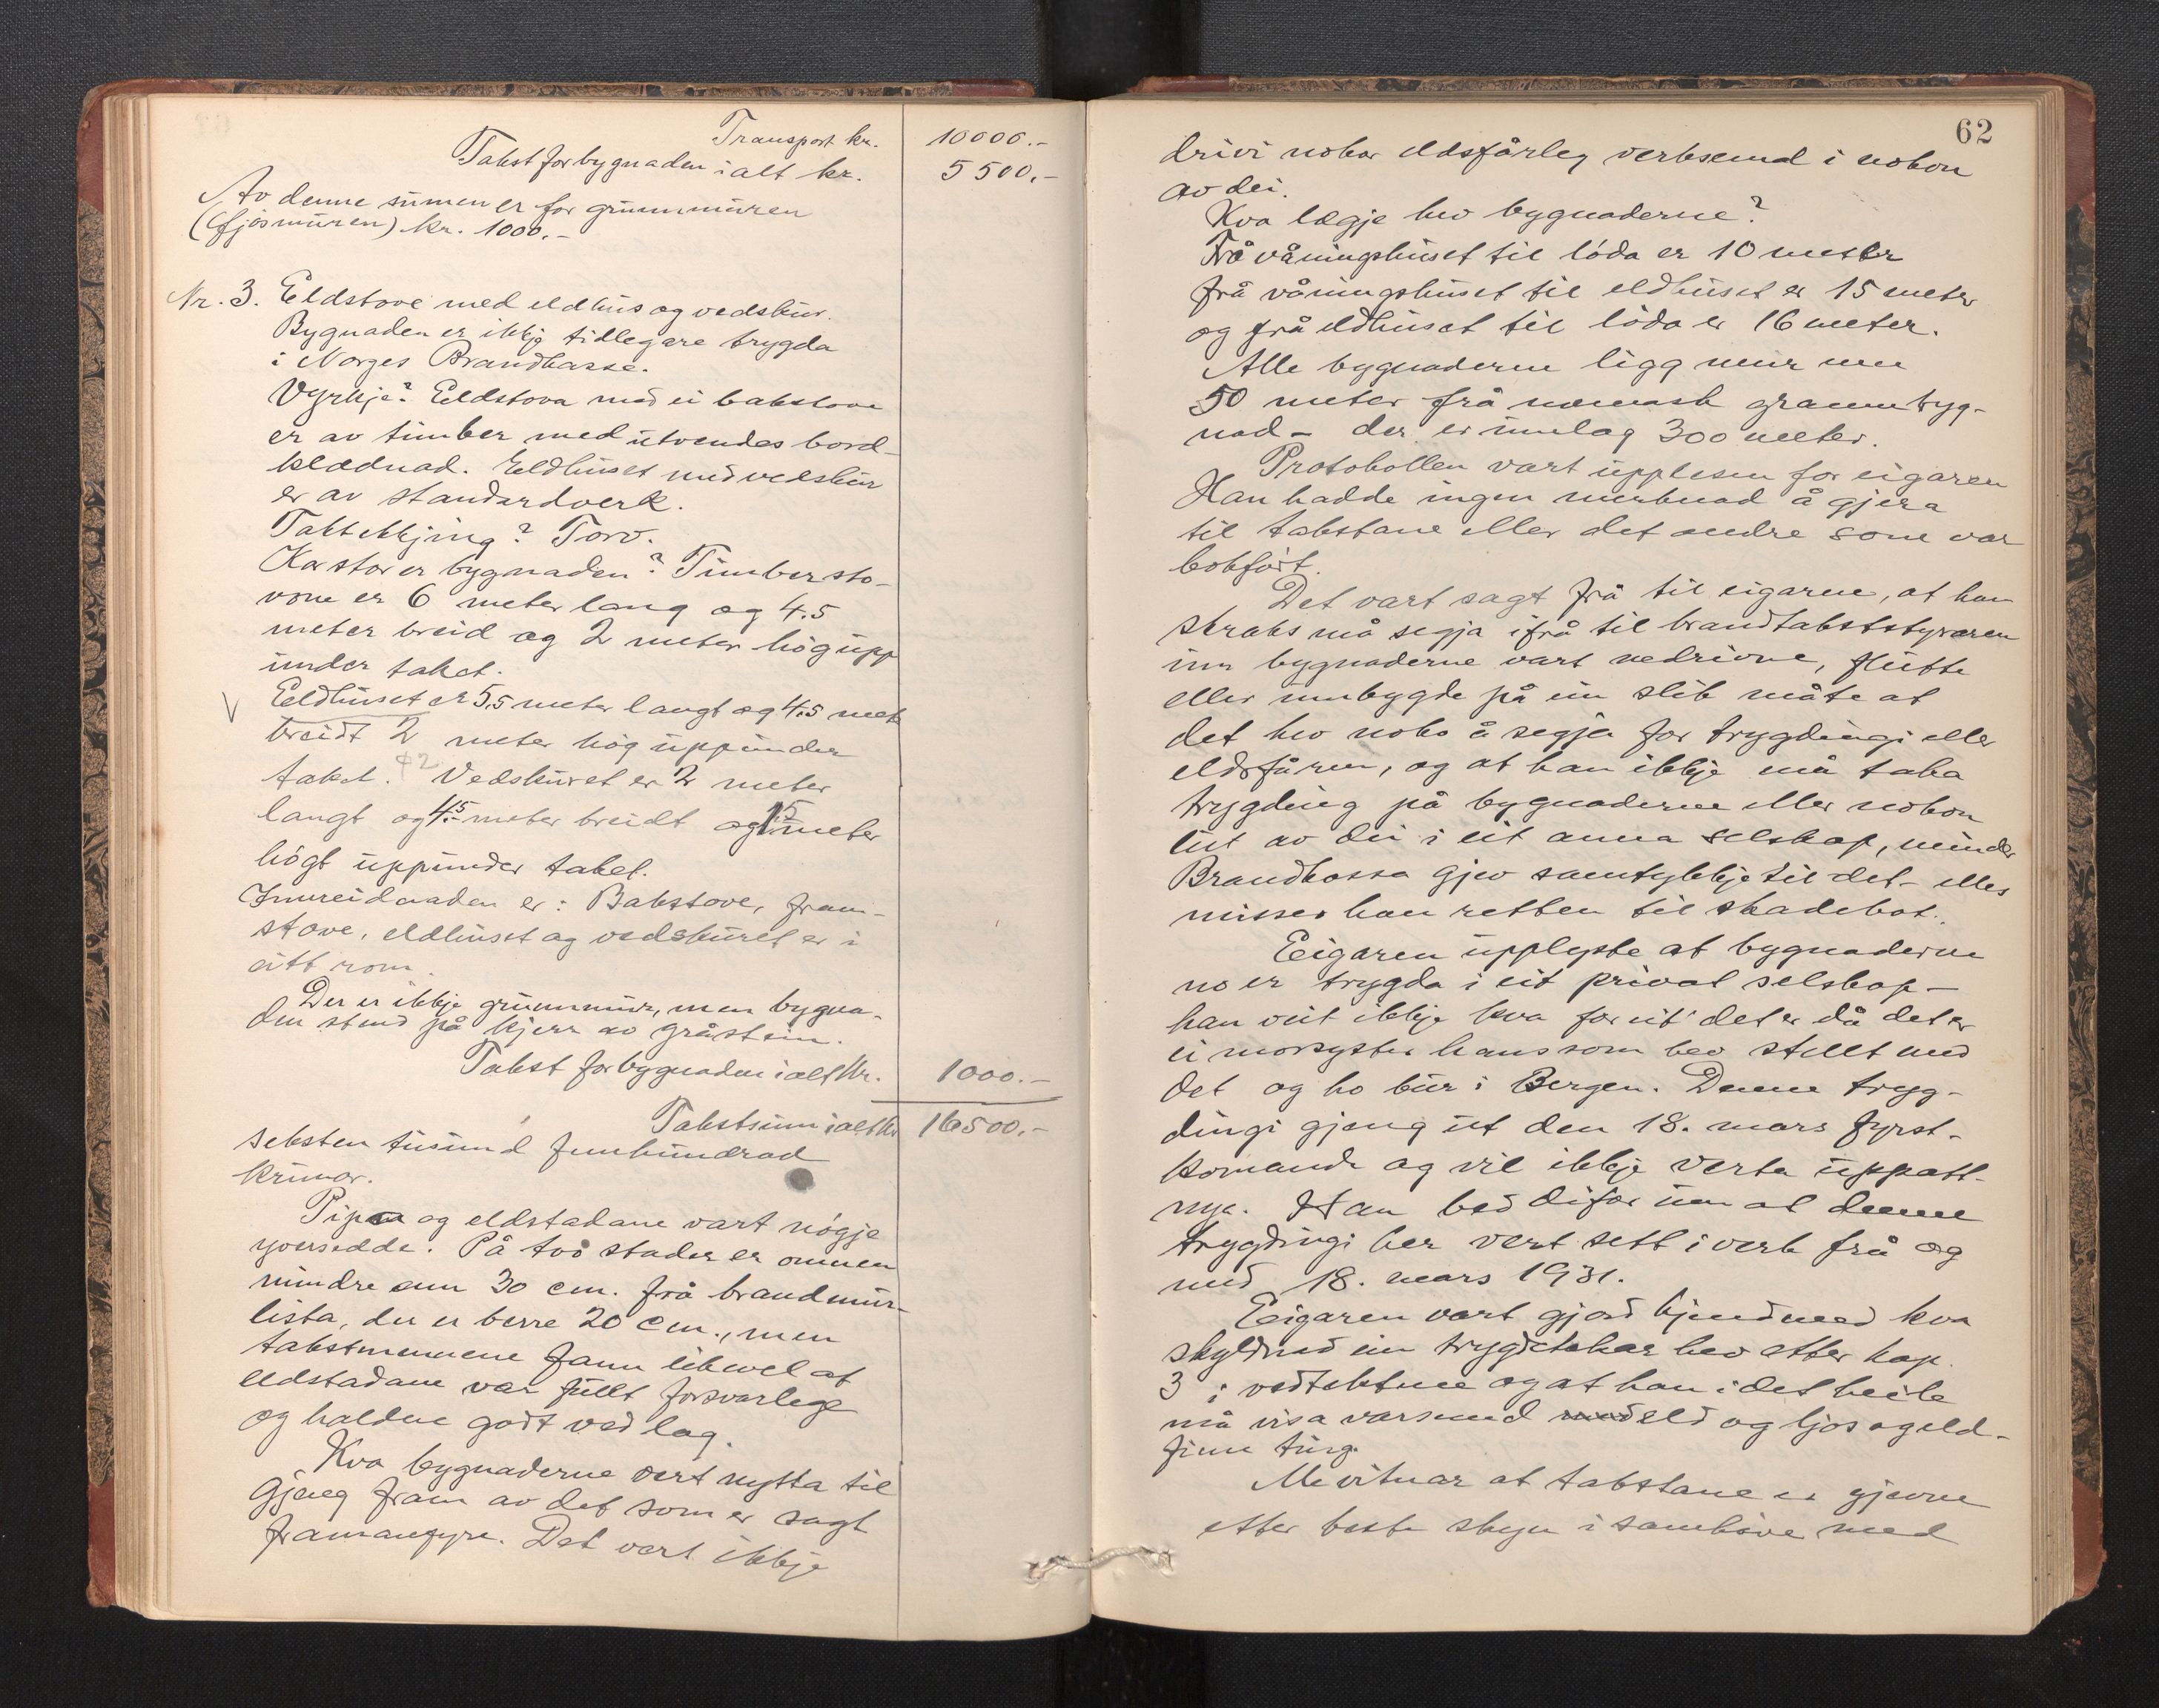 Transport kr. 10000.-
Takst for bygnaden i alt kr. 5500.-
Av denne sumen er for grunnmuren
(fjøsmuren) kr. 1000.-
Nr. 3. Eldstove med eldhus og vedskur.
Bygnaden er ikkje tidlegare trygda
i Norges Brandkasse.
Vyrkje? Eldstova med ei bakstove
er av timber med utvendes bord-
klædnad. Eldhuset med vedskur
er av standardverk.
Taktekkjing? Torv.
Kor stor er bygnaden? Timbersto-
vone er 6 meter lang og 4.5
meter breid og 2 meter høg upp
under taket.
V Eldhuset er 5,5 meter langt og 4.5 meter
breidt 2 meter høg uppunder
taket. Vedskuret er 2 meter
langt og 4.5 meter breidt og 1.5 meter
høgt uppunder taket.
Innreidnaden er: Bakstove, fram-
stove, eldhuset og vedskuret er i
eitt rom.
Der er ikkje grunnmur, men bygna-
den stend på kjerr av gråstein.
Takst for bygnaden i alt kr. 1000.-
Takstsum i alt kr 16500.-
seksten tusund femhundrad
krunor.
Pipa og eldstadane vart nøgje
yversedde. På tvo stader er omnen
mindre enn 30 cm. frå brandmur-
lista, der er berre 20 cm., men
takstmennene fann likevel at
eldstadane var fullt forsvarlege
og haldne godt ved lag.
Kva bygnaderne vert nytta til
gjeng fram av det som er sagt
framanfyre. Det vart ikkje
62
drivi nokor eldsfårleg verksemd i nokon
av dei.
Kva lægje hev bygnaderne?
Frå våningshuset til løda er 10 meter
frå våningshuset til eldhuset er 15 meter
og frå eldhuset til løda er 16 meter.
Alle bygnaderne ligg meir enn
50 meter frå næmaste grannebyg-
nad - der er umlag 300 meter.
Protokollen vart upplesen for eigaren
Han hadde ingen merknad å gjera
til takstane eller det andre som var
bokført.
Det vart sagt frå til eigaren, at han
straks må segja ifrå til brandtakststyraren
um bygnaderne vart nedrivne, flutte
eller umbygde på ein slik måte at
det hev noko å segja for trygdingi eller
eldsfåren, og at han ikkje må taka
trygding på bygnaderne eller nokon
lut av dei i eit anna selskap, minder
Brandkassa gjev samtykkje til det - elles
misser han retten til skadebot.
Eigaren upplyste at bygnaderne
no er trygda i eit privat selskap -
han veit ikkje kva for eit det er då det er
ei morsyster hans som hev stellt med
det og ho bur i Bergen. Denne tryg-
dingi gjeng ut den 18. mars fyrst-
komande og vil ikkje verta uppatt-
nya. Han bad difor um at denne
trygdingi her vert sett i verk frå og
med 18. mars 1931.
Eigaren vart gjord kjend med kva
skyldnad ein trygdetakar hev etter kap.
3 i vedtektene og at han i det heile
må visa varsemd med eld og ljos og eld-
fime ting.
Me vitnar at takstane er gjevne
etter beste skyn i samhøve med